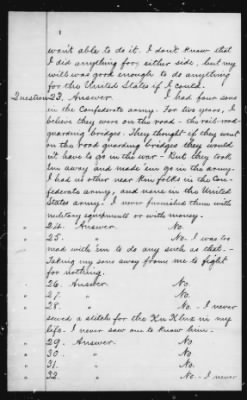 wasn't able to do it. I don't know that
I did anything for, either side, but my
will was good enough to do anything
for the United States if I could.
Question 23. Answer. I had four sons
in the Confederate army. For two years, I
believe they were on the road - the rail-road-
guarding bridges. They thought if they went
on the road guarding bridges they would
n't have to go in the war - But they took
'em away and made 'em go in the army.
I had no other near kin folks in the Con-
federate army, and none in the United
States army. I never furnished them with
military equipments or with money.
" 24. Answer. No.
" 25. " No. I was too
mad with 'em to do any such as that. -
Taking my sons away from me to fight
for nothing.
" 26. Answer. No.
" 27. " No.
" 28. " No. - I never
sewed a stitch for the Ku Klux in my
life. I never saw one to know him.
" 29. Answer. No.
" 30. " No.
" 31. " No.
" 32. " No. - I never